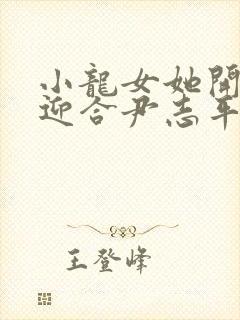 小龍女她開
迎合尹志平
王登峰